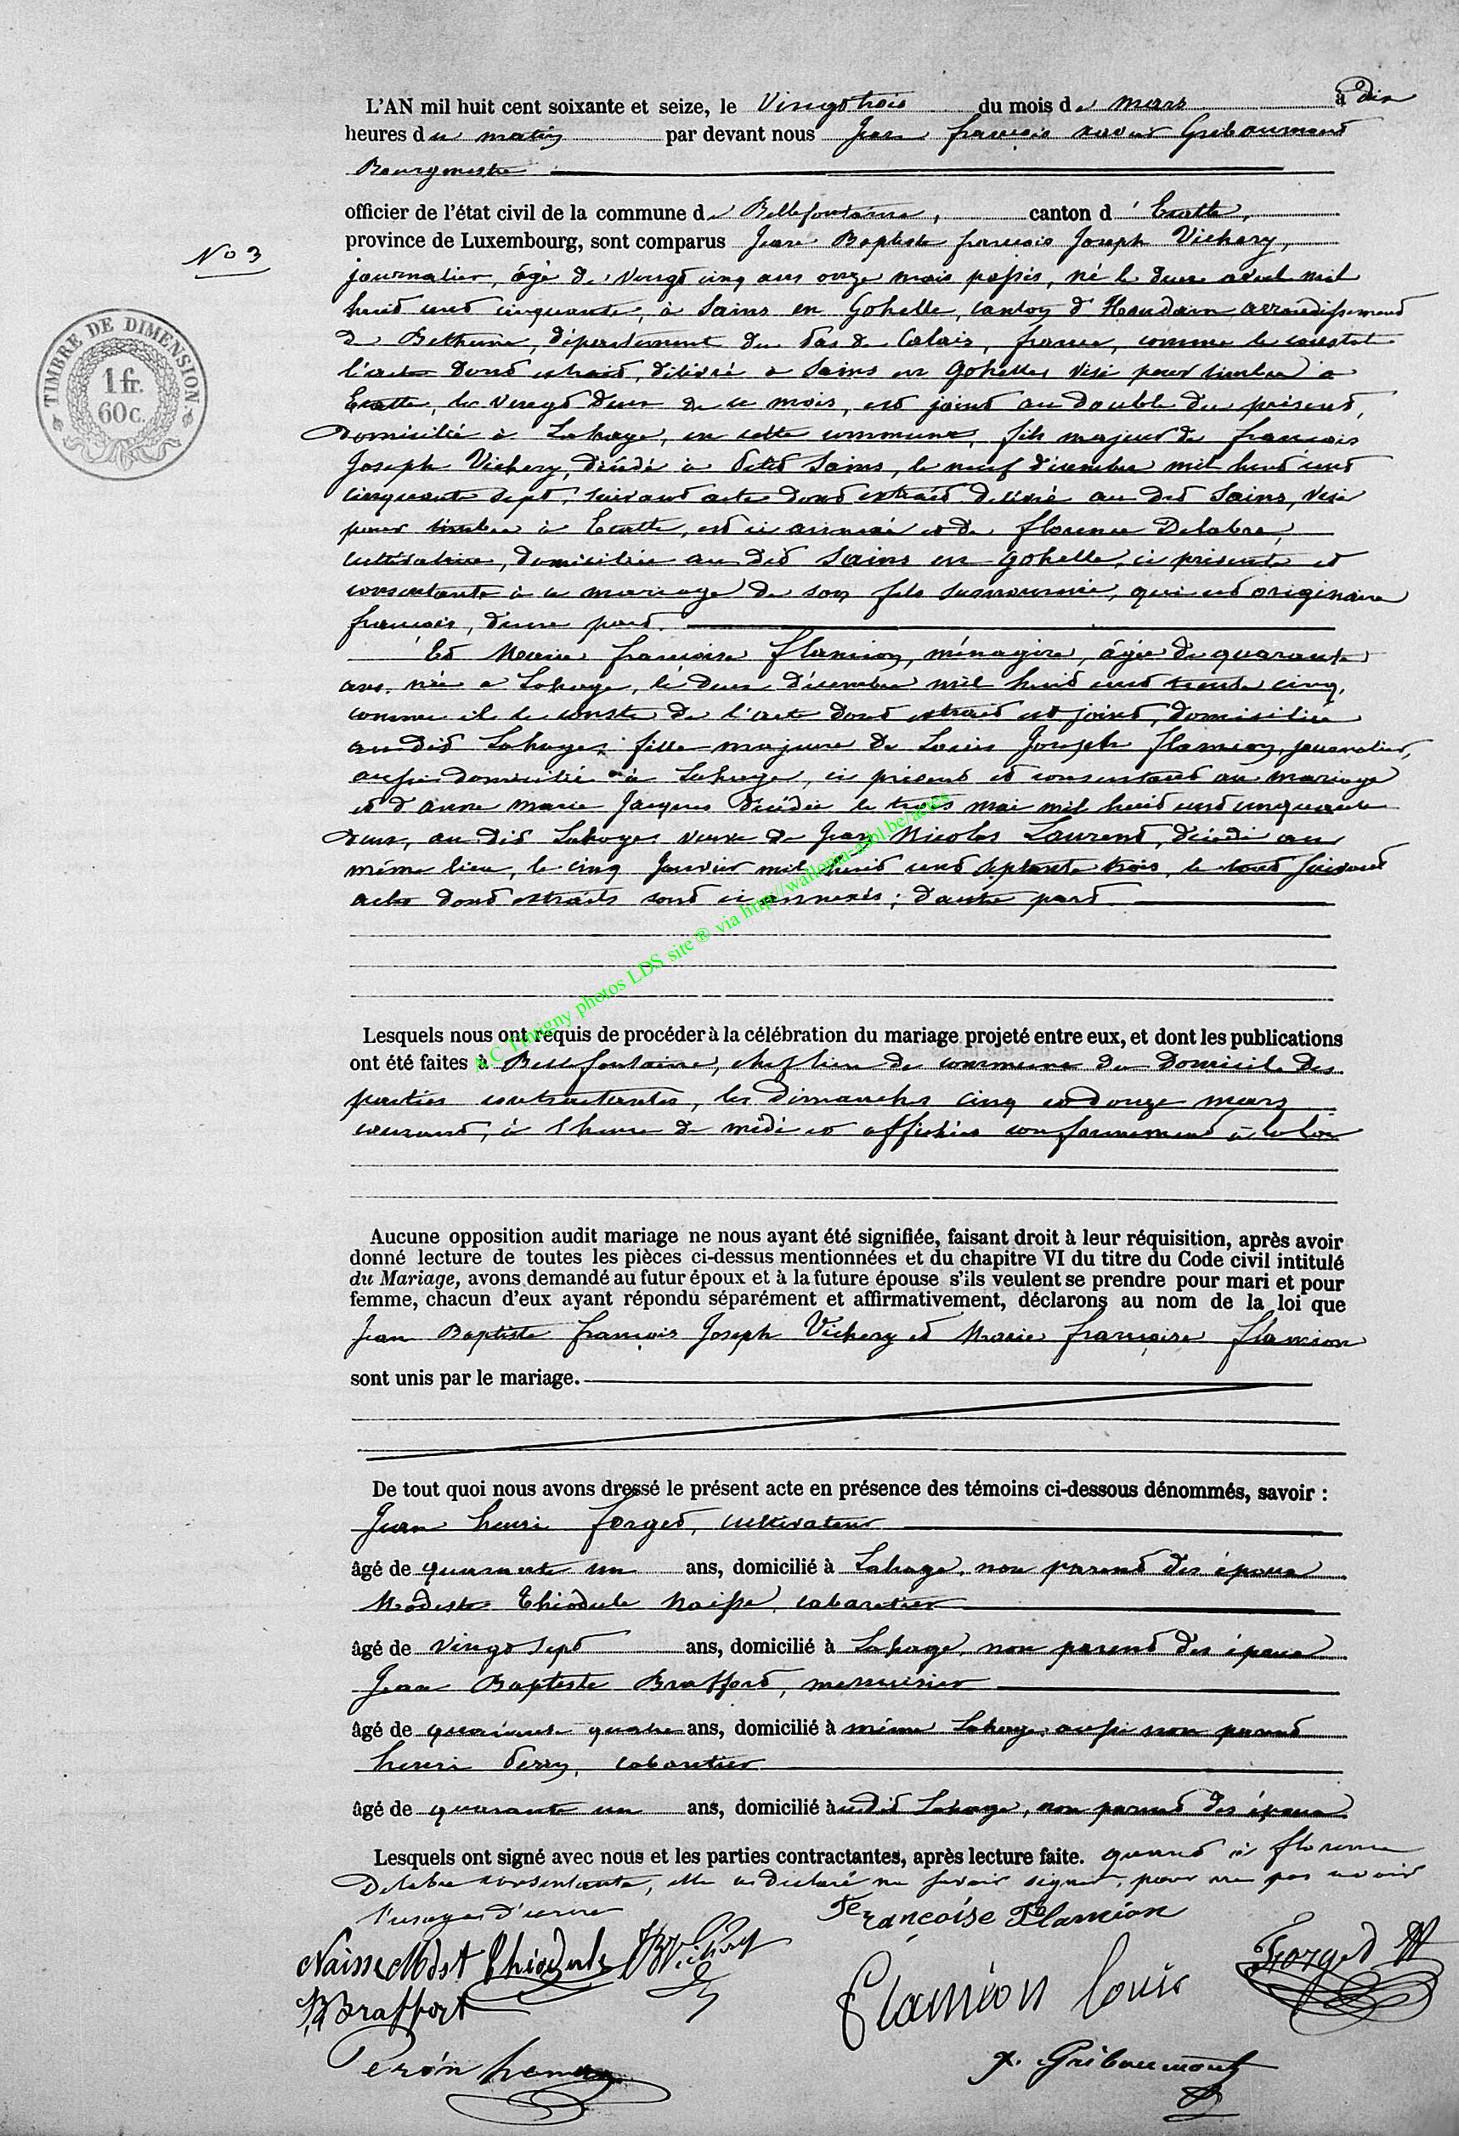 L'AN mil huit cent soixante et seize, le vingt trois du mois de mars à dix
heures du matin par devant nous Jean françois xavier Gribaumont
Bourgmestre
officier de l'état civil de la commune de Bellefontaine, canton d'Etalle,
province de Luxembourg, sont comparus Jean Baptiste françois Joseph Vichery,
No 3
journalier, âgé de vingt cinq ans onze mois passés, né le deux avril mil
huit cent cinquante, à Sains en Gohelle, canton d'Houdain arrondissement
de Bethune, département du Pas de Calais, france, comme le constate
l'acte dont extrait, délivré à Sains en Gohelle, visé pour timbre à
Etalle, le vingt deux de ce mois, est joint au double du présent,
domicilié à Lahage, en cette commune, fils majeur de françois
Joseph Vichery, décédé à Sains, le neuf décembre mil huit cent
cinquante sept, suivant acte dont extrait délivré au dit Sains, visé
pour timbre à Etalle, est ci annexé et de florence Delabre,
cultivatrice, domiciliée au dit Sains en Gohelle, ci présente et
consentante à ce mariage de son fils susnommé, qui est originaire
français, d'une part.
Et Marie françoise flamion, ménagère, âgée de quarante
ans, née à Lahage, le deux décembre mil huit cent trente cinq,
comme il le conste de l'acte dont extrait est joint, domiciliée
au dit Lahage, fille majeure de Louis Joseph flamion, journalier,
aussi domicilié à Lahage, ci présent et consentant au mariage
et d'anne marie Jacques décédée le trois mai mil huit cent cinquante
deux, au dit Lahage, veuve de Jean Nicolas Laurent, décédé au
même lieu, le cinq Janvier mil huit cent septante trois, le tout suivant
acte dont extraits sont ci annexés; d'autre part.
A.C Tintigny photos LDS site ® via http://wallonia-asbl.be/actes
Lesquels nous ont requis de procéder à la célébration du mariage projeté entre eux, et dont les publications
ont été faites à Bellefontaine, chef lieu de commune du domicile des
parties contractantes, les dimanches cinq et douze mars
courant, à l'heure de midi et affichées conformément à la loi
Aucune opposition audit mariage ne nous ayant été signifiée, faisant droit à leur réquisition, après avoir
donné lecture de toutes les pièces ci-dessus mentionnées et du chapitre VI du titre du Code civil intitulé
du Mariage, avons demandé au futur époux et à la future épouse s'ils veulent se prendre pour mari et pour
femme, chacun d'eux ayant répondu séparément et affirmativement, déclarons au nom de la loi que
Jean Baptiste françois Joseph Vichery et Marie françoise flamion
sont unis par le mariage.
De tout quoi nous avons dressé le présent acte en présence des témoins ci-dessous dénommés, savoir :
Jean henri forget, cultivateur
âgé de quarante un ans, domicilié à Lahage, non parent des époux
Modeste Thiodule Naisse, cabaretier
âgé de vingt sept ans, domicilié à Lahage, non parent des époux
Jean Baptiste Braffort, menuisier
âgé de quarante quatre ans, domicilié à même Lahage, aussi non parent
henri Peron, cabaretier
âgé de quarante un ans, domicilié audit Lahage, non parent des époux
Lesquels ont signé avec nous et les parties contractantes, après lecture faite. quant à florence
Delabre consentante, elle a déclaré ne savoir signer, pour ne pas avoir
l'usage d'écrire
Françoise Flamion
Naisse Mdst Thiodule JB Vichery
Forget JH
JB Braffort
Flamion louis
Peron henri
x. Gribaumont
TIMBRE DE DIMENSION
1 fr.
60c.